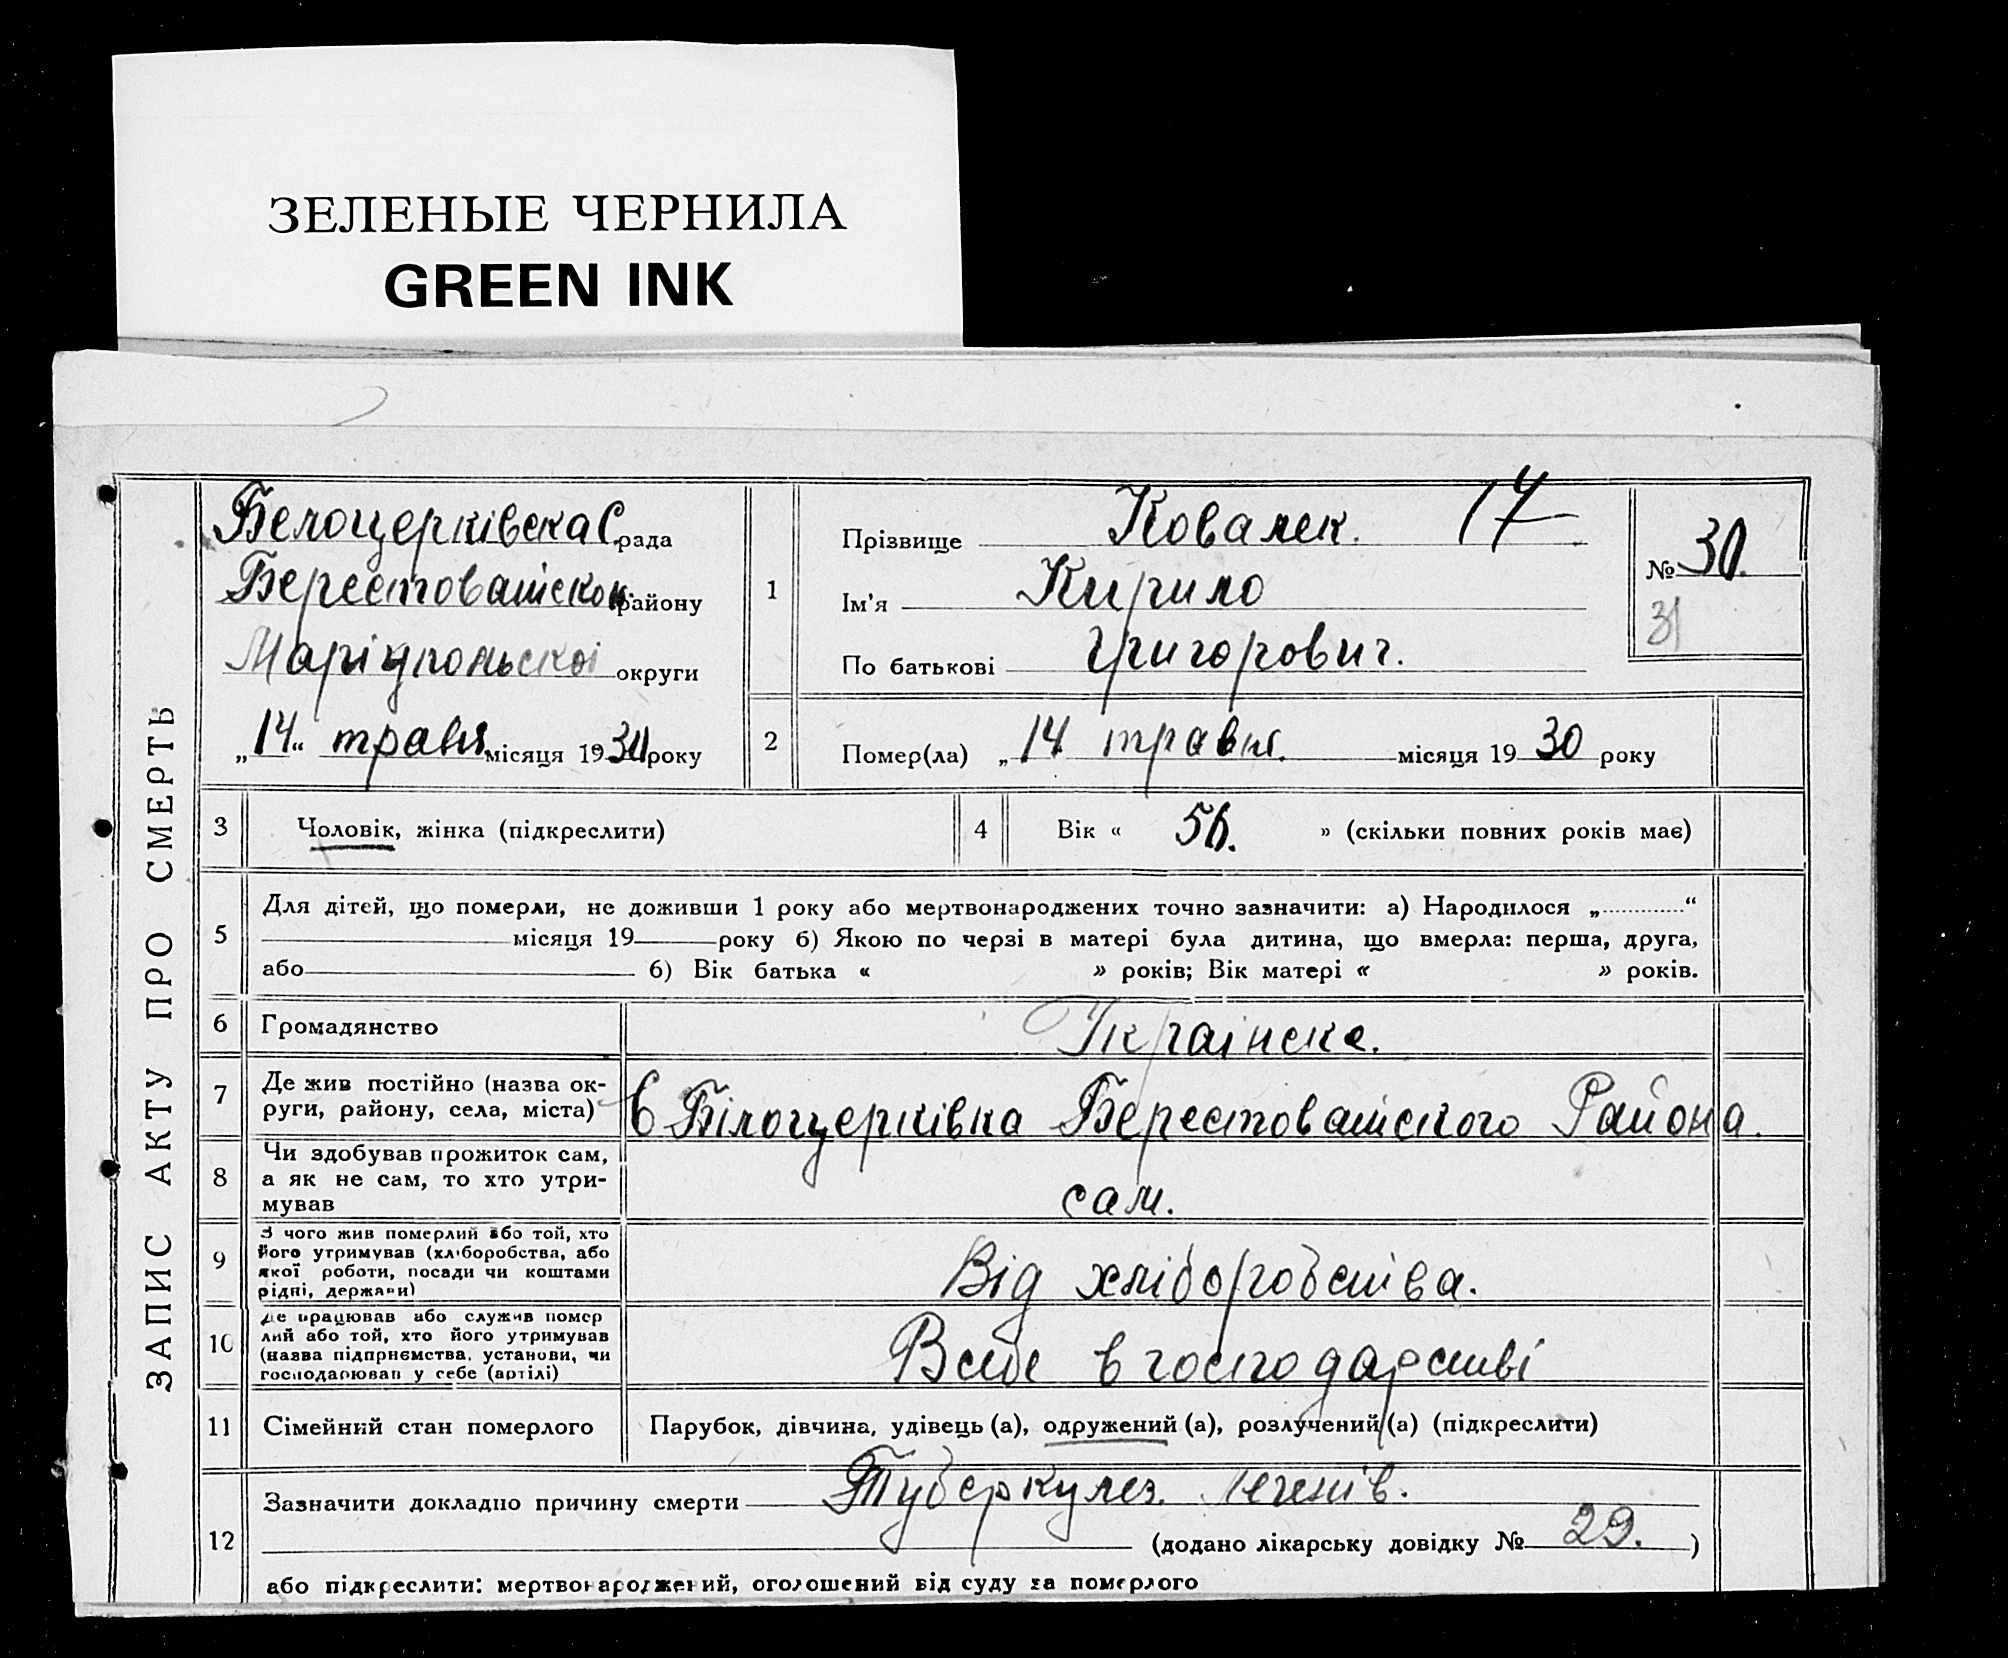 ЗЕЛЕНЫЕ ЧЕРНИЛА
GREEN INK
ЗАПИС АКТУ ПРО СМЕРТЬ
Белоцерківска С. рада
Берестоватской району
Маріупольскоі округи
„14“ травня місяця 1930 року
1
Прізвище Ковалек. 17
Ім'я Кирило
По батькові Григорович.
№ 30.
31
2
Помер(ла) „14 травня. місяця 19 30 року
3 Чоловік, жінка (підкреслити)
4 Вік « 56. » (скільки повних років має)
5
Для дітей, що померли, не доживши 1 року або мертвонароджених точно зазначити: а) Народилося „ “
місяця 19 року б) Якою по черзі в матері була дитина, що вмерла: перша, друга,
або б) Вік батька « » років; Вік матері « » років.
6 Громадянство Украінске.
7 Де жив постійно (назва ок-
руги, району, села, міста) в Білоцерківка Берестоватского Района.
8 Чи здобував прожиток сам,
а як не сам, то хто утри-
мував сам.
9 З чого жив померлий або той, хто
його утримував (хліборобства, або
якої роботи, посади чи коштами
рідні, держави) Від хліборобства.
10 Де працював або служив помер
лий або той, хто його утримував
(назва підприємства, установи, чи
господарював у себе (артілі) в господарстві
11 Сімейний стан померлого Парубок, дівчина, удівець (а), одружений (а), розлучений (а) (підкреслити)
12
Зазначити докладно причину смерти Туберкулез. Легенів.
(додано лікарську довідку № 29. )
або підкреслити: мертвонароджений, оголошений від суду за померлого